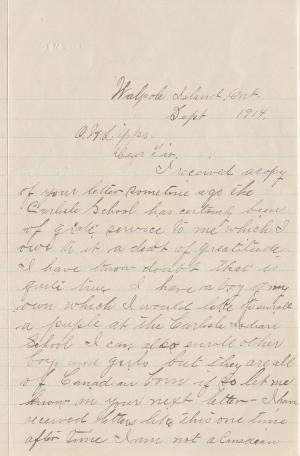 Walpole Island, Ont.
Sept 1914.
O. H. Lipps.
Dear Sir,
I received a copy
of your letter sometime ago the
Carlisle School has certainly been
of great service to me which I
owe to it a debt of greatitude
I have know doubt that is
quite true I have a boy of my
own which I would like to enroll
a puple at the Carlisle Indian
School I can also enroll other
boys and girls but they are all
of Canadian born if so let me
know in your next letter I have
received letters like this one time
after time I am not a Canadian